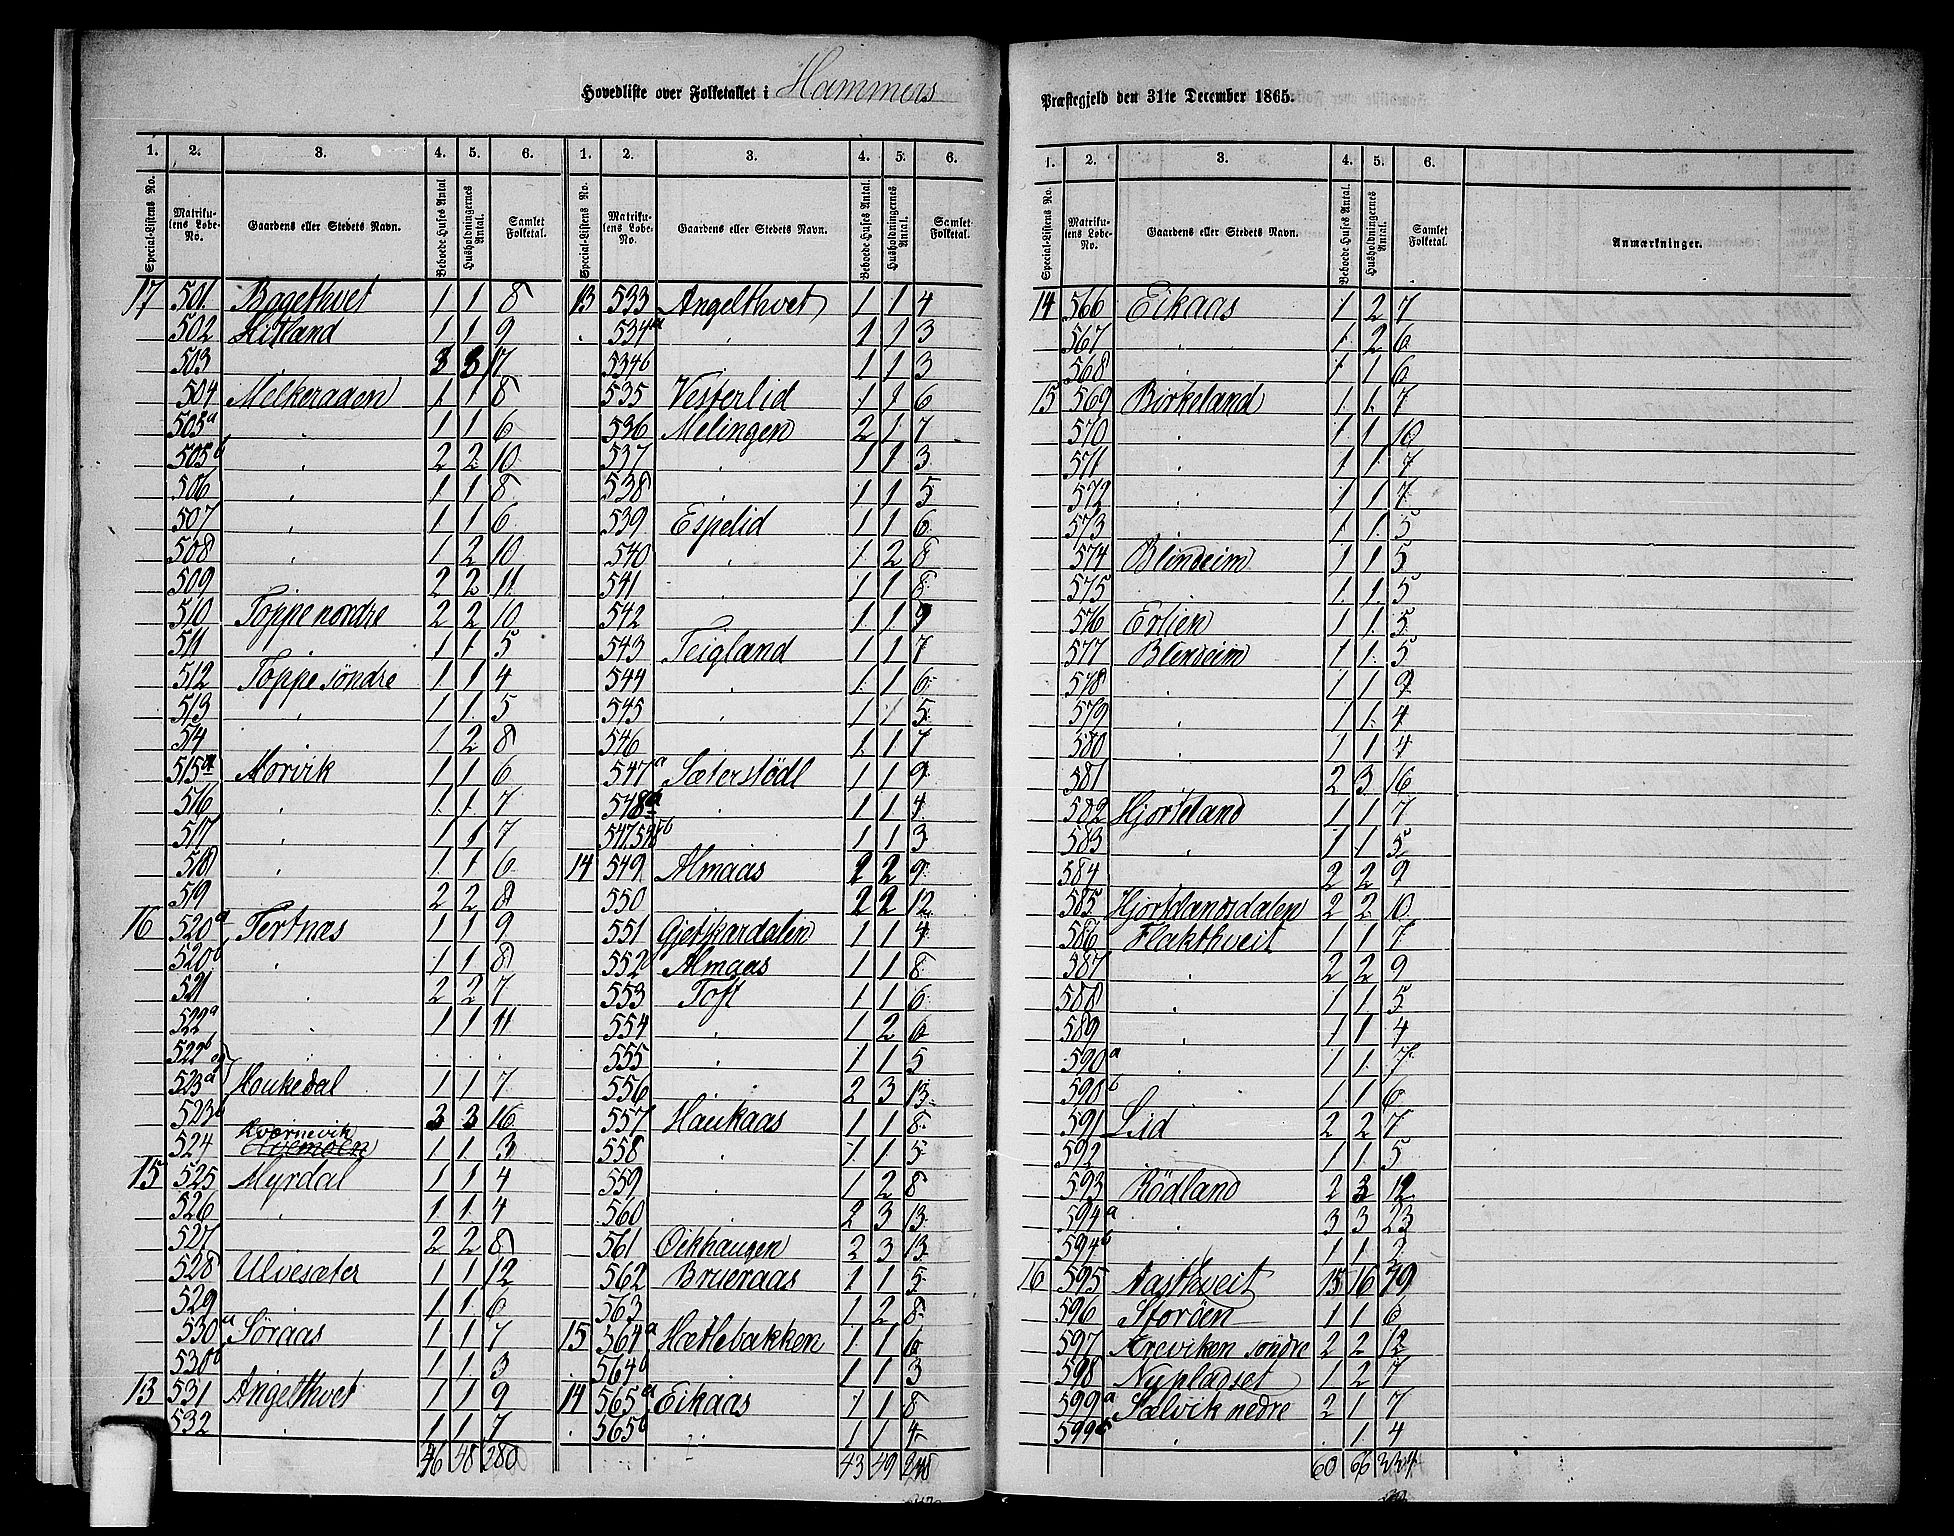 Hovedliste over Folketallet i Hammers
Præstegjeld den 31te December 1865.
1. 2. 3. 4. 5. 6. 1. 2. 3. 4. 5. 6.
Special-Listens No. Matrikulens Løbe-No. Gaardens eller Stedets Navn. Beboede Huses Antal Husholdningernes Antal. Samlet Folketal. Special-Listens No. Matrikulens Løbe-No. Gaardens eller Stedets Navn. Beboede Huses Antal. Husholdningernes Antal. Samlet Folketal.
17 501 Bogethvet 1 1 8
502 Hitland 1 1 9
503 3 3 17
504 Melkeraaen 1 1 8
505a " 1 1 6
505b " 2 2 10
506 " 1 1 8
507 " 1 1 6
508 " 1 2 10
509 2 2 11
510 Toppe nordre 2 2 10
511 " 1 1 5
512 Toppe söndre 1 1 4
513 " 1 1 5
514 1 2 8
515a Morvik 1 1 6
516 " 1 1 7
517 " 1 1 7
518 " 1 1 6
519 2 2 8
16 520a Tertnæs 1 1 9
520b " 1 1 8
521 " 2 2 7
522a " 1 1 11
522b . . .
523a Haukedal 1 1 7
523b 3 3 16
524 Kværnevik 1 1 3
15 525 Myrdal 1 1 4
526 " 1 1 4
527 2 2 8
528 Ulvesæter 1 1 12
529 1 1 6
530a Søraas 1 1 7
530b 1 1 3
13 531 Angelthvet 1 1 9
532 " 1 1 7
46 48 280
13 533 Angelthvet 1 1 4
534a " 1 1 3
534b 1 1 3
535 Vesterlid 1 1 6
536 Melingen 2 1 7
537 " 1 1 3
538 " 1 1 5
539 Espelid 1 1 6
540 " 1 2 8
541 " 1 1 8
542 1 1 9
543 Teigland 1 1 7
544 " 1 1 6
545 " 1 1 5
546 1 1 7
547a Sæterstödl 1 1 9
548a " 1 1 4
547.548b 1 1 3
14 549 Almaas 2 2 9
550 2 2 12
551 Gjetikardalen 1 1 4
552 Almaas 1 1 8
553 Toft 1 1 6
554 " 1 2 6
555 " 1 1 5
556 2 3 13
557 Haukaas 1 1 8
558 " 1 1 5
559 " 1 2 8
560 2 3 13
561 Oekhaugen 2 3 13
562 Brueraas 1 1 5
563 1 2 8
15 564a Hætlebakken 1 1 6
564b 1 1 3
14 565a Eikaas 1 1 8
565b " 1 1 4
43 49
1. 2. 3. 4. 5. 6.
Special-Listens No. Matrikulens Løbe-No. Gaardens eller Stedets Navn. Beboede Huses Antal. Husholdningernes Antal. Samlet Folketal. Anmærkninger.
14 566 Eikaas 1 2 7
567 " " 1 2 6
568 1 1 6
15 569 Birkeland 1 1 7
570 " 1 1 10
571 " 1 1 7
572 " 1 1 7
573 1 1 5
574 Blindeim 1 1 5
575 1 1 5
576 Erlien 1 1 5
577 Blindeim 1 1 5
578 " 1 1 9
579 " 1 1 4
580 " 1 1 4
581 2 3 16
582 Hjorteland 1 1 7
583 " 1 1 5
584 2 2 9
585 Hjortlandsdalen 2 2 10
586 Flakthveit 1 1 7
587 " 2 2 9
588 " 1 1 5
589 " 1 1 4
590a " 1 1 7
590b 1 1 6
591 Lid 2 2 7
592 1 1 5
593 Rödland 2 3 12
594a " 3 3 23
594b 1 1 2
16 595 Aasthveit 15 16 79
596 Storöen 1 1 6
597 Kreviken söndre 2 2 12
598 Nypladset 1 2 7
599a Salvik nedre 2 1 7
599 . 1 4
60 66 334